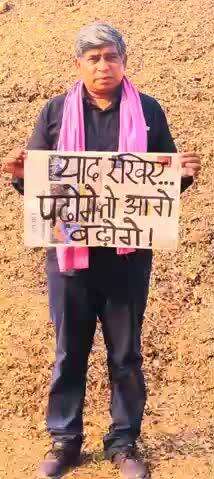 याद रखिए...
पढोगे तो आगे
बढ़ोगे!